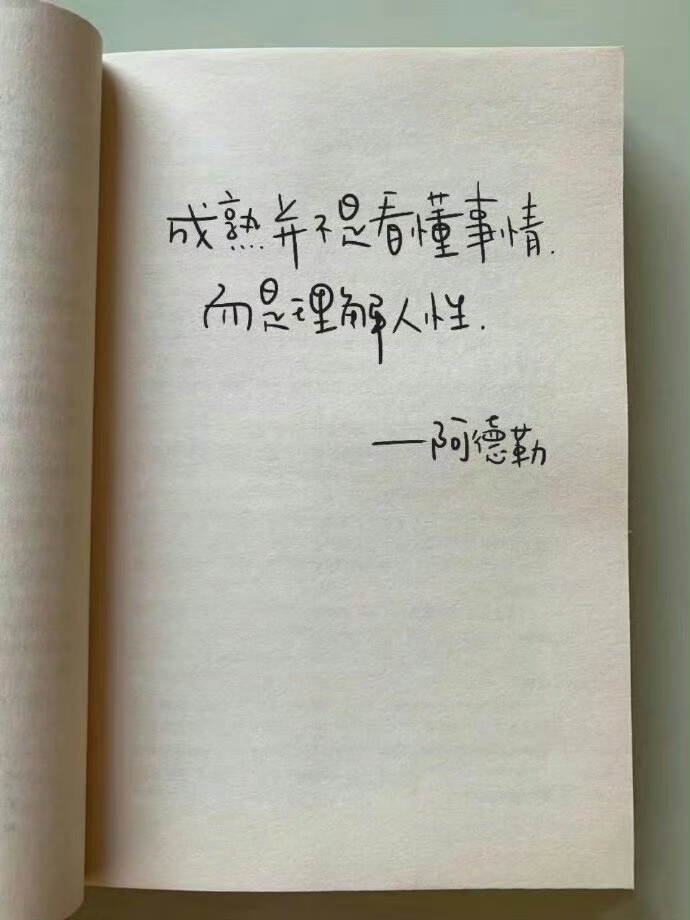 成熟并不是看懂事情.
而是理解人性.
——阿德勒